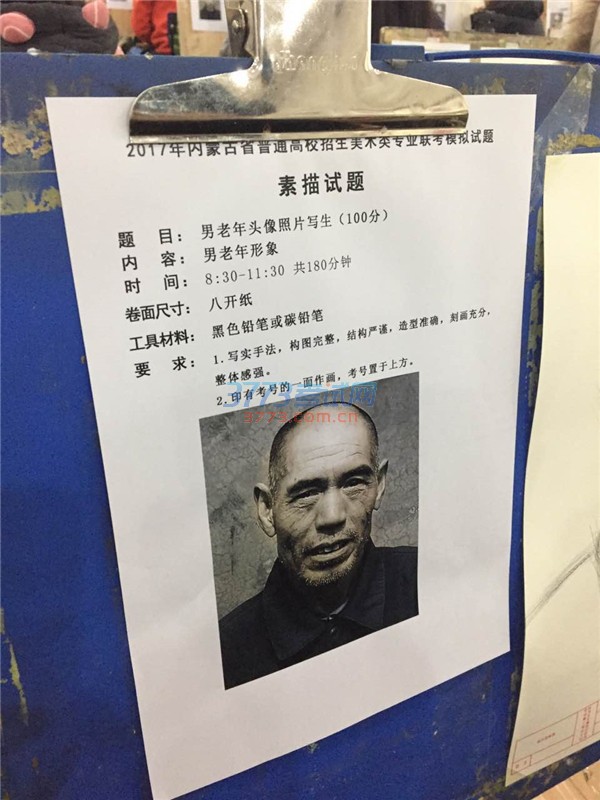 2017年内蒙古省普通高校招生美术类专业联考模拟试题
素描试题
题 目：男老年头像照片写生（100分）
内 容：男老年形象
时 间：8:30-11:30 共180分钟
卷面尺寸：八开纸
工具材料：黑色铅笔或碳铅笔
要 求：1.写实手法，构图完整，结构严谨，造型准确，刻画充分，
整体感强。
2.印有考号的一面作画，考号置于上方。
3773考试网
3773.com.cn